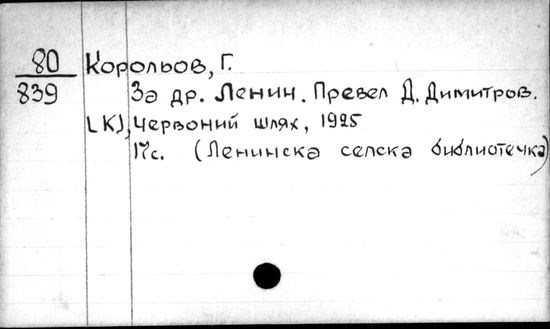 80 Корольов, Г.
839 За др. Ленин. Превел Д. Димитров.
[К], Червоний шлях, 1925
17с. (Ленинска селска библиотечка)